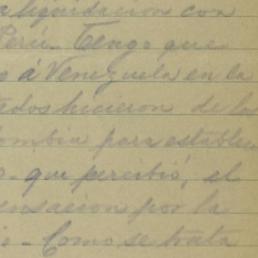 liquidacion con
Perú. Tengo que
á Venezuela en la
hicieron de la
para estable
que percibió, el
por la
Como se trata